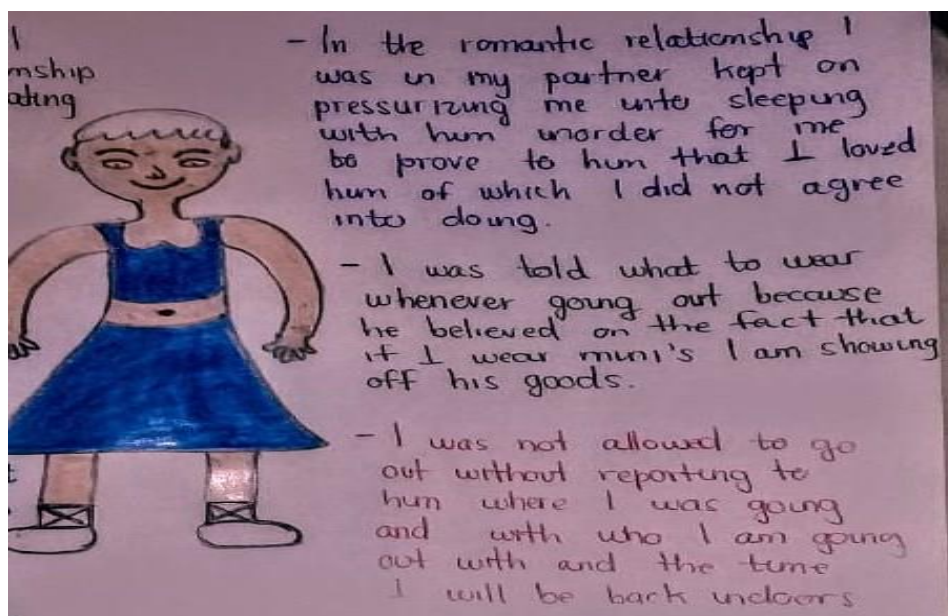 I
nship
ating
- In the romantic relationship I
was in my partner kept on
pressurizing me into sleeping
with him inorder for me
be prove to him that I loved
him of which I did not agree
into doing.
- I was told what to wear
whenever going out because
he believed on the fact that
if I wear mini's I am showing
off his goods.
- I was not allowed to go
out without reporting to
him where I was going
and with who I am going
out with and the time
I will be back indoors